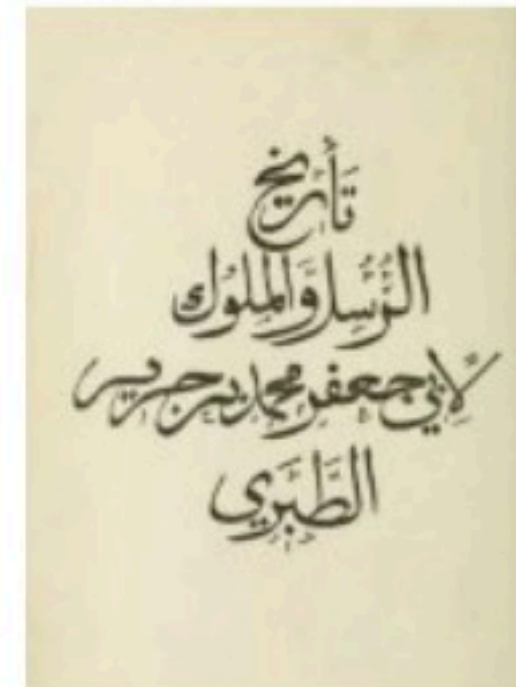 تَأريخ
الرُّسُل وَالملُوك
لِأبي جعفر محمد بن جرير
الطَّبَري